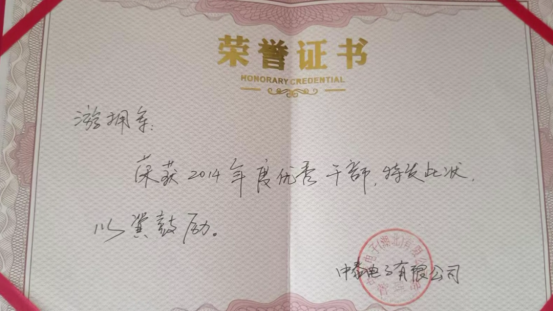 荣誉证书
HONORARY CREDENTIAL
游拥军:
荣获2014年度优秀干部,特发此状,
以冀鼓励。
中泰电子有限公司